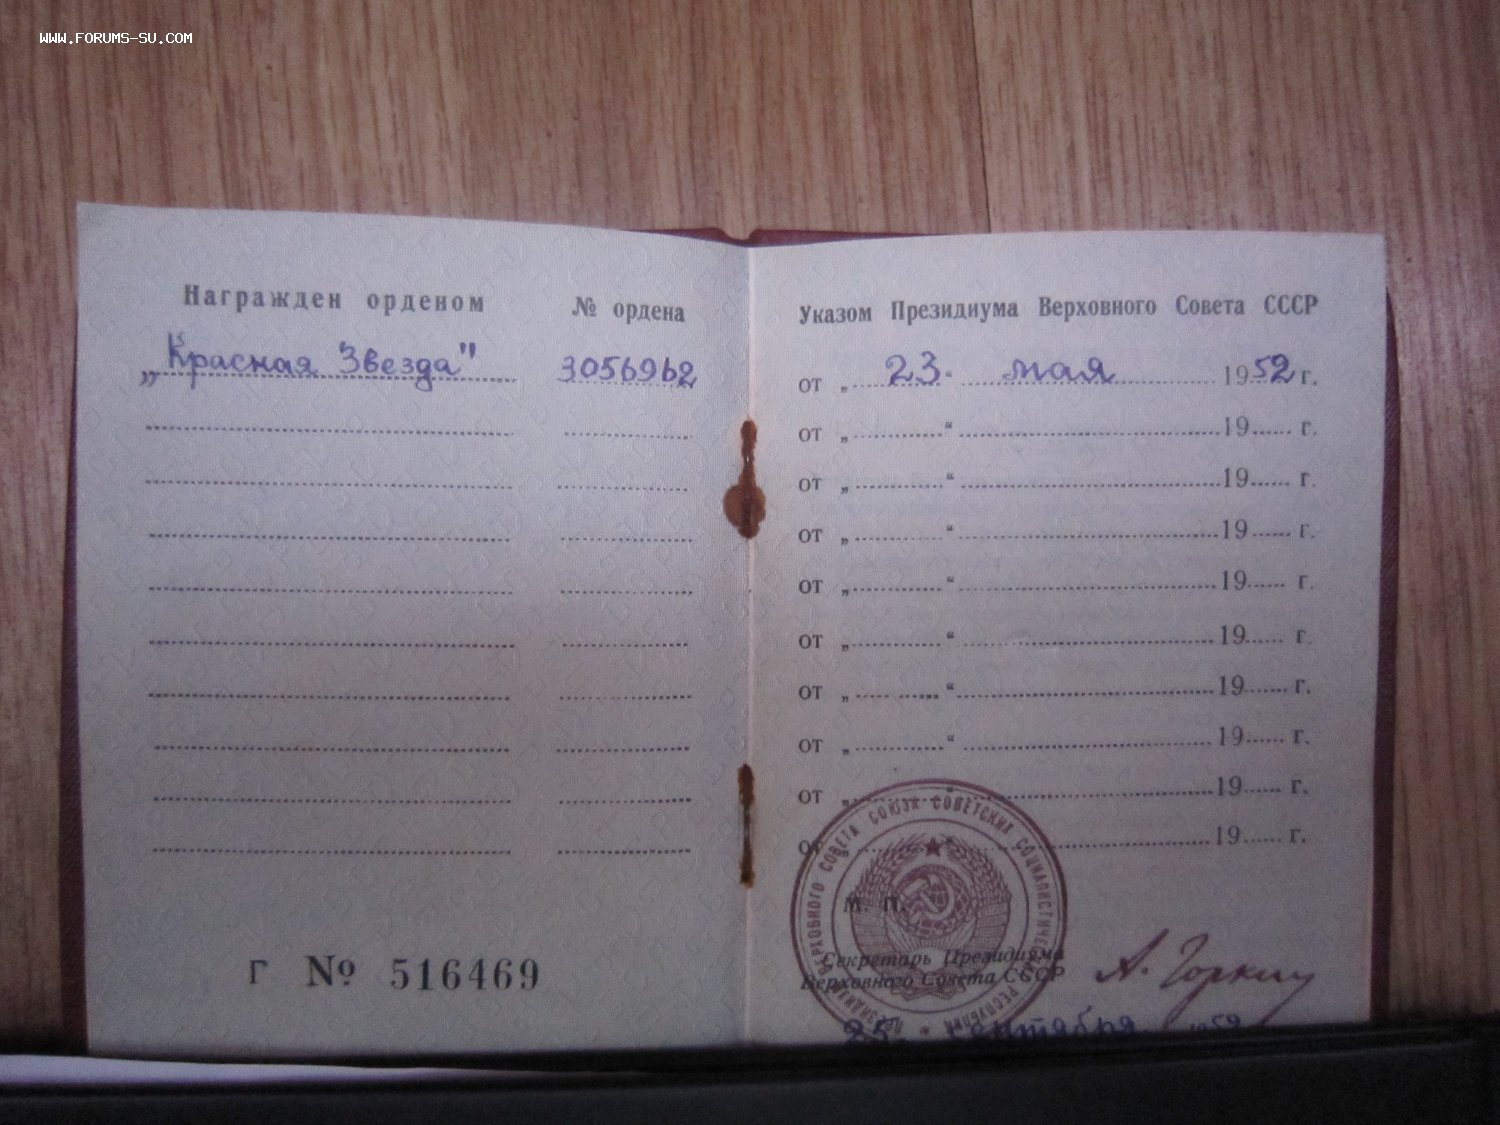 WWW.FORUMS-SU.COM
Награжден орденом № ордена
„Красная Звезда" 3056962
Г № 516469
Указом Президиума Верховного Совета СССР
от „ 23. мая 1952 г.
от „ “ 19 г.
от „ “ 19 г.
от „ “ 19 г.
от „ “ 19 г.
от „ “ 19 г.
от „ “ 19 г.
от „ “ 19 г.
от „ “ 19 г.
от 19 г.
ПРЕЗИДИУМ ВЕРХОВНОГО СОВЕТА СОЮЗА СОВЕТСКИХ СОЦИАЛИСТИЧЕСКИХ РЕСПУБЛИК
М. П.
Секретарь Президиума
Верховного Совета СССР
А. Горкин
25. сентября 1952